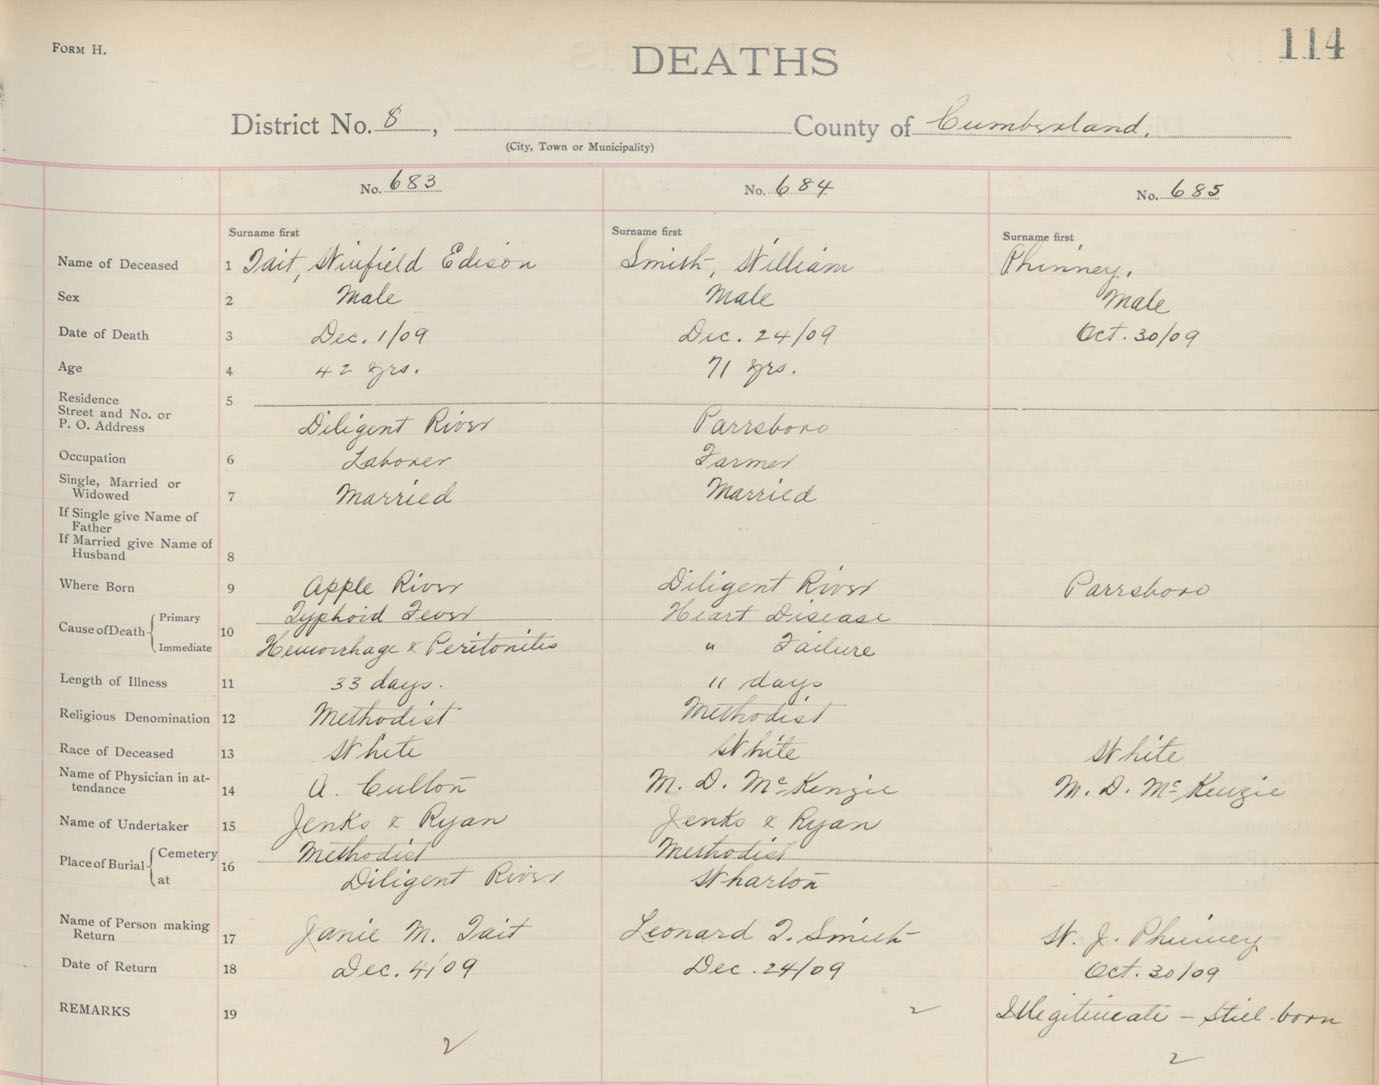 FORM H.
DEATHS
114
District No. 8, County of Cumberland.
(City, Town or Municipality)
No. 683 No. 684 No. 685
Surname first Surname first Surname first
Name of Deceased 1 Tait, Winfield Edison Smith, William Phinney.
Sex 2 Male Male Male
Date of Death 3 Dec. 1/09 Dec. 24/09 Oct. 30/09
Age 4 42 yrs. 71 yrs.
Residence 5
Street and No. or
P. O. Address Diligent River Parrsboro
Occupation 6 Laborer Farmer
Single, Married or
Widowed 7 Married Married
If Single give Name of
Father
If Married give Name of
Husband 8
Where Born 9 Apple River Diligent River Parrsboro
Cause of Death 10 Primary Typhoid Fever Heart Disease
Immediate Hemorrhage & Peritonitis " Failure
Length of Illness 11 33 days. 11 days
Religious Denomination 12 Methodist Methodist
Race of Deceased 13 White White White
Name of Physician in at-
tendance 14 A. Cullon M. D. McKenzie M. D. McKenzie
Name of Undertaker 15 Jenks & Ryan Jenks & Ryan
Place of Burial 16 Cemetery Methodist Methodist
at Diligent River Wharton
Name of Person making
Return 17 Janie M. Tait Leonard T. Smith W. J. Phinney
Date of Return 18 Dec. 4/09 Dec. 24/09 Oct. 30/09
REMARKS 19 Illegitimate - Still-born
2 2 2